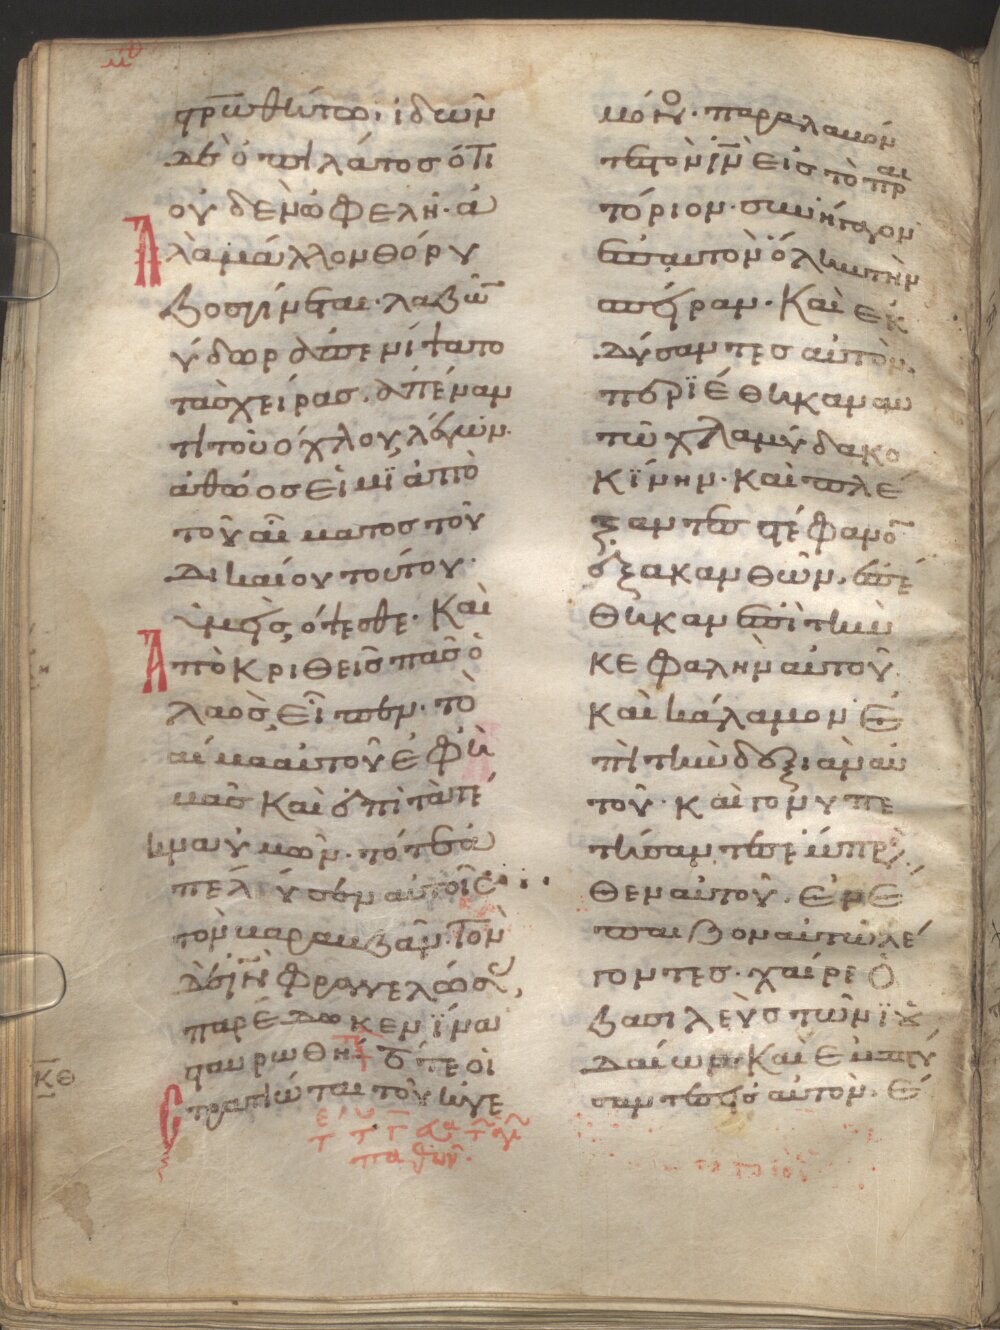 μθ
σταυρωθήτω· ἰδὼν
δὲ ὁ πιλάτος ὅτι
οὐδὲν ὠφελῆ· ἀ
λὰ μάλλον θόρυ
βος γίνεται· λαβὼν
ὕδωρ ἀπενίψατο
τὰς χείρας ἀπέναν
τι τοῦ ὄχλου λέγων·
ἀθῶος εἰμϊ ἀπὸ
τοῦ αἵματος τοῦ
δικαίου τούτου·
ὑμεῖς ὄψεσθε· καὶ
ἀποκριθεὶς πᾶς ὁ
λαὸς εἶπεν· τὸ
αἷμα αὐτοῦ ἐφ ἡ
μᾶς καὶ ἐπὶ τὰ τέ
κνα ὑμῶν· τότε ἀ
πέλυσεν αὐτοῖς
τὸν βαραββᾶν· τὸν
δὲ ἰν φραγγελώσας
παρέδωκεν ἵνα
σταυρωθῆ· τότε οἱ
στρατιῶται τοῦ ἡγε
κθ
παθῶν
μόνος· παραλαβόν
τες τὸν ἰν εἰς τὸ πραι
τόριον· συνήγαγον
ἐπ αὐτὸν ὅλην τὴν
σπεῖραν· καὶ ἐκ
δύσαντες αὐτὸν·
περϊέθηκαν αυ
τῶ χλαμύδα κο
κϊνην· καὶ πλέ
ξαντες στέφανον
ἐξ ἀκανθῶν· ἐπέ
θηκαν ἐπὶ τὴν
κεφαλὴν αὐτοῦ
καὶ κάλαμον ἐ
πὶ τὴν δεξιὰν αὐ
τοῦ· καὶ γονυπε
τήσαντες ἔμπρο
σθεν αὐτοῦ· ἐνέ
παιζον αὐτῶ λέ
γοντες· χαίρε ὁ
βασιλεὺς τῶν ϊου
δαίων· καὶ ἐμπτύ
σαντες εἰς αὐτὸν· ἔ